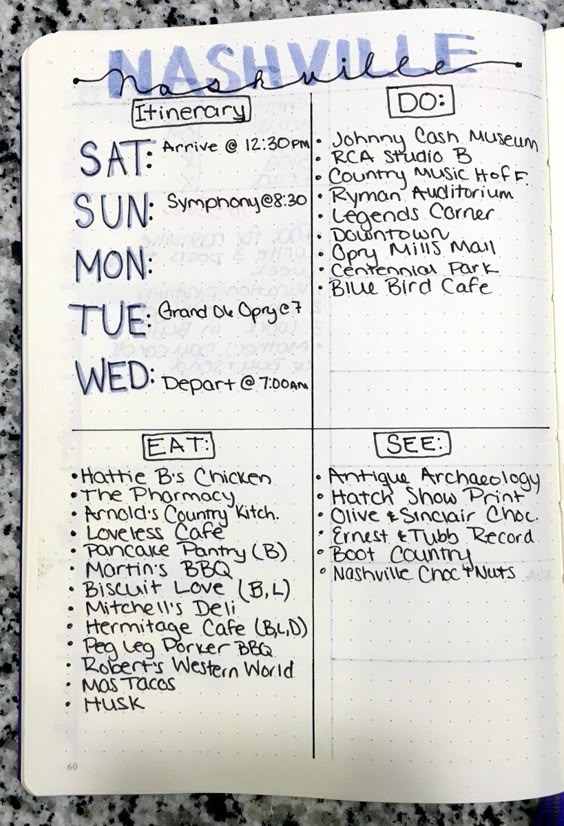 NASHVILLE
Nashville
Itinerary
SAT: Arrive @ 12:30PM
SUN: Symphony@8:30
MON:
TUE: Grand Ole Opry@7
WED: Depart @ 7:00AM
DO:
• Johnny Cash Museum
• RCA Studio B
• Country Music H of F.
• Ryman Auditorium
• Legends Corner
• Downtown
• Opry Mills Mall
• Centennial Park
• Blue Bird Cafe
EAT:
• Hattie B's Chicken
• The Pharmacy
• Arnold's Country Kitch.
• Loveless Cafe
• Pancake Pantry (B)
• Martin's BBQ
• Biscuit Love (B,L)
• Mitchell's Deli
• Hermitage Cafe (B,L,D)
• Peg Leg Porker BBQ
• Robert's Western World
• Mas Tacos
• Husk
SEE:
• Antique Archaeology
• Hatch Show Print
• Olive & Sinclair Choc.
• Ernest & Tubb Record
• Boot Country
• Nashville Choc + Nuts
60